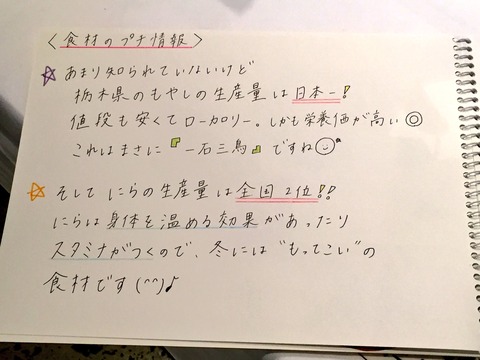 〈食材のプチ情報〉
☆あまり知られていないけど
栃木県のもやしの生産量は日本一!
値段も安くてローカロリー。しかも栄養価が高い◎
これはまさに『一石三鳥』ですね☺
☆そしてにらの生産量は全国2位!!
にらは身体を温める効果があったり
スタミナがつくので、冬には"もってこい"の
食材です(^^)♪